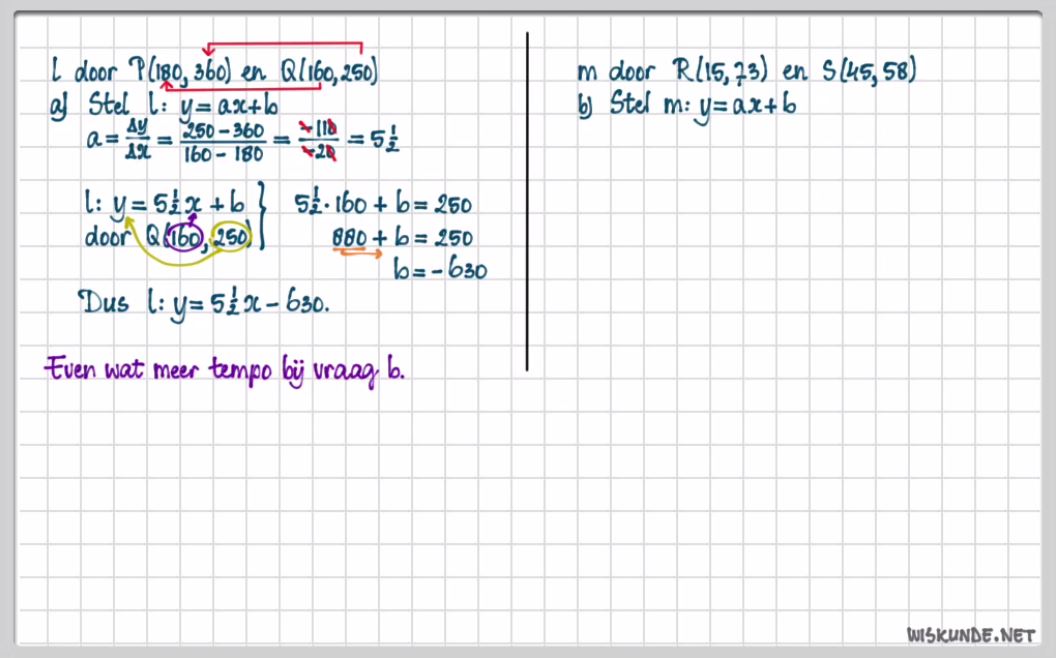 l door P(180, 360) en Q(160, 250)
a) Stel l: y = ax + b
a = Δy/Δx = (250 - 360)/(160 - 180) = -110/-20 = 5½
l: y = 5½x + b
door Q(160, 250)
5½ · 160 + b = 250
880 + b = 250
b = -630
Dus l: y = 5½x - 630.
Even wat meer tempo bij vraag b.
m door R(15, 73) en S(45, 58)
b) Stel m: y = ax + b
WISKUNDE.NET